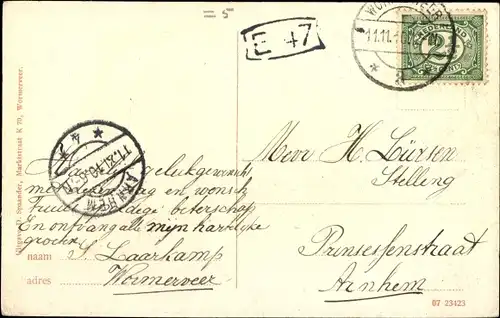 = 5
E 47
WORMERVEER
11.11.1
NEDERLAND
2½
CENT
Uitgave D. Spaander, Marktstraat K 70, Wormerveer.
ARNHEM
gelukgewenscht
met en dag en wensch
Truus beterschap
En ontvang alle mijn hartelijke
groeten
naam S. Laarkamp
adres Wormerveer
Mevr H. Lürsen
Stelling
Prinsessenstraat
Arnhem
07 23123